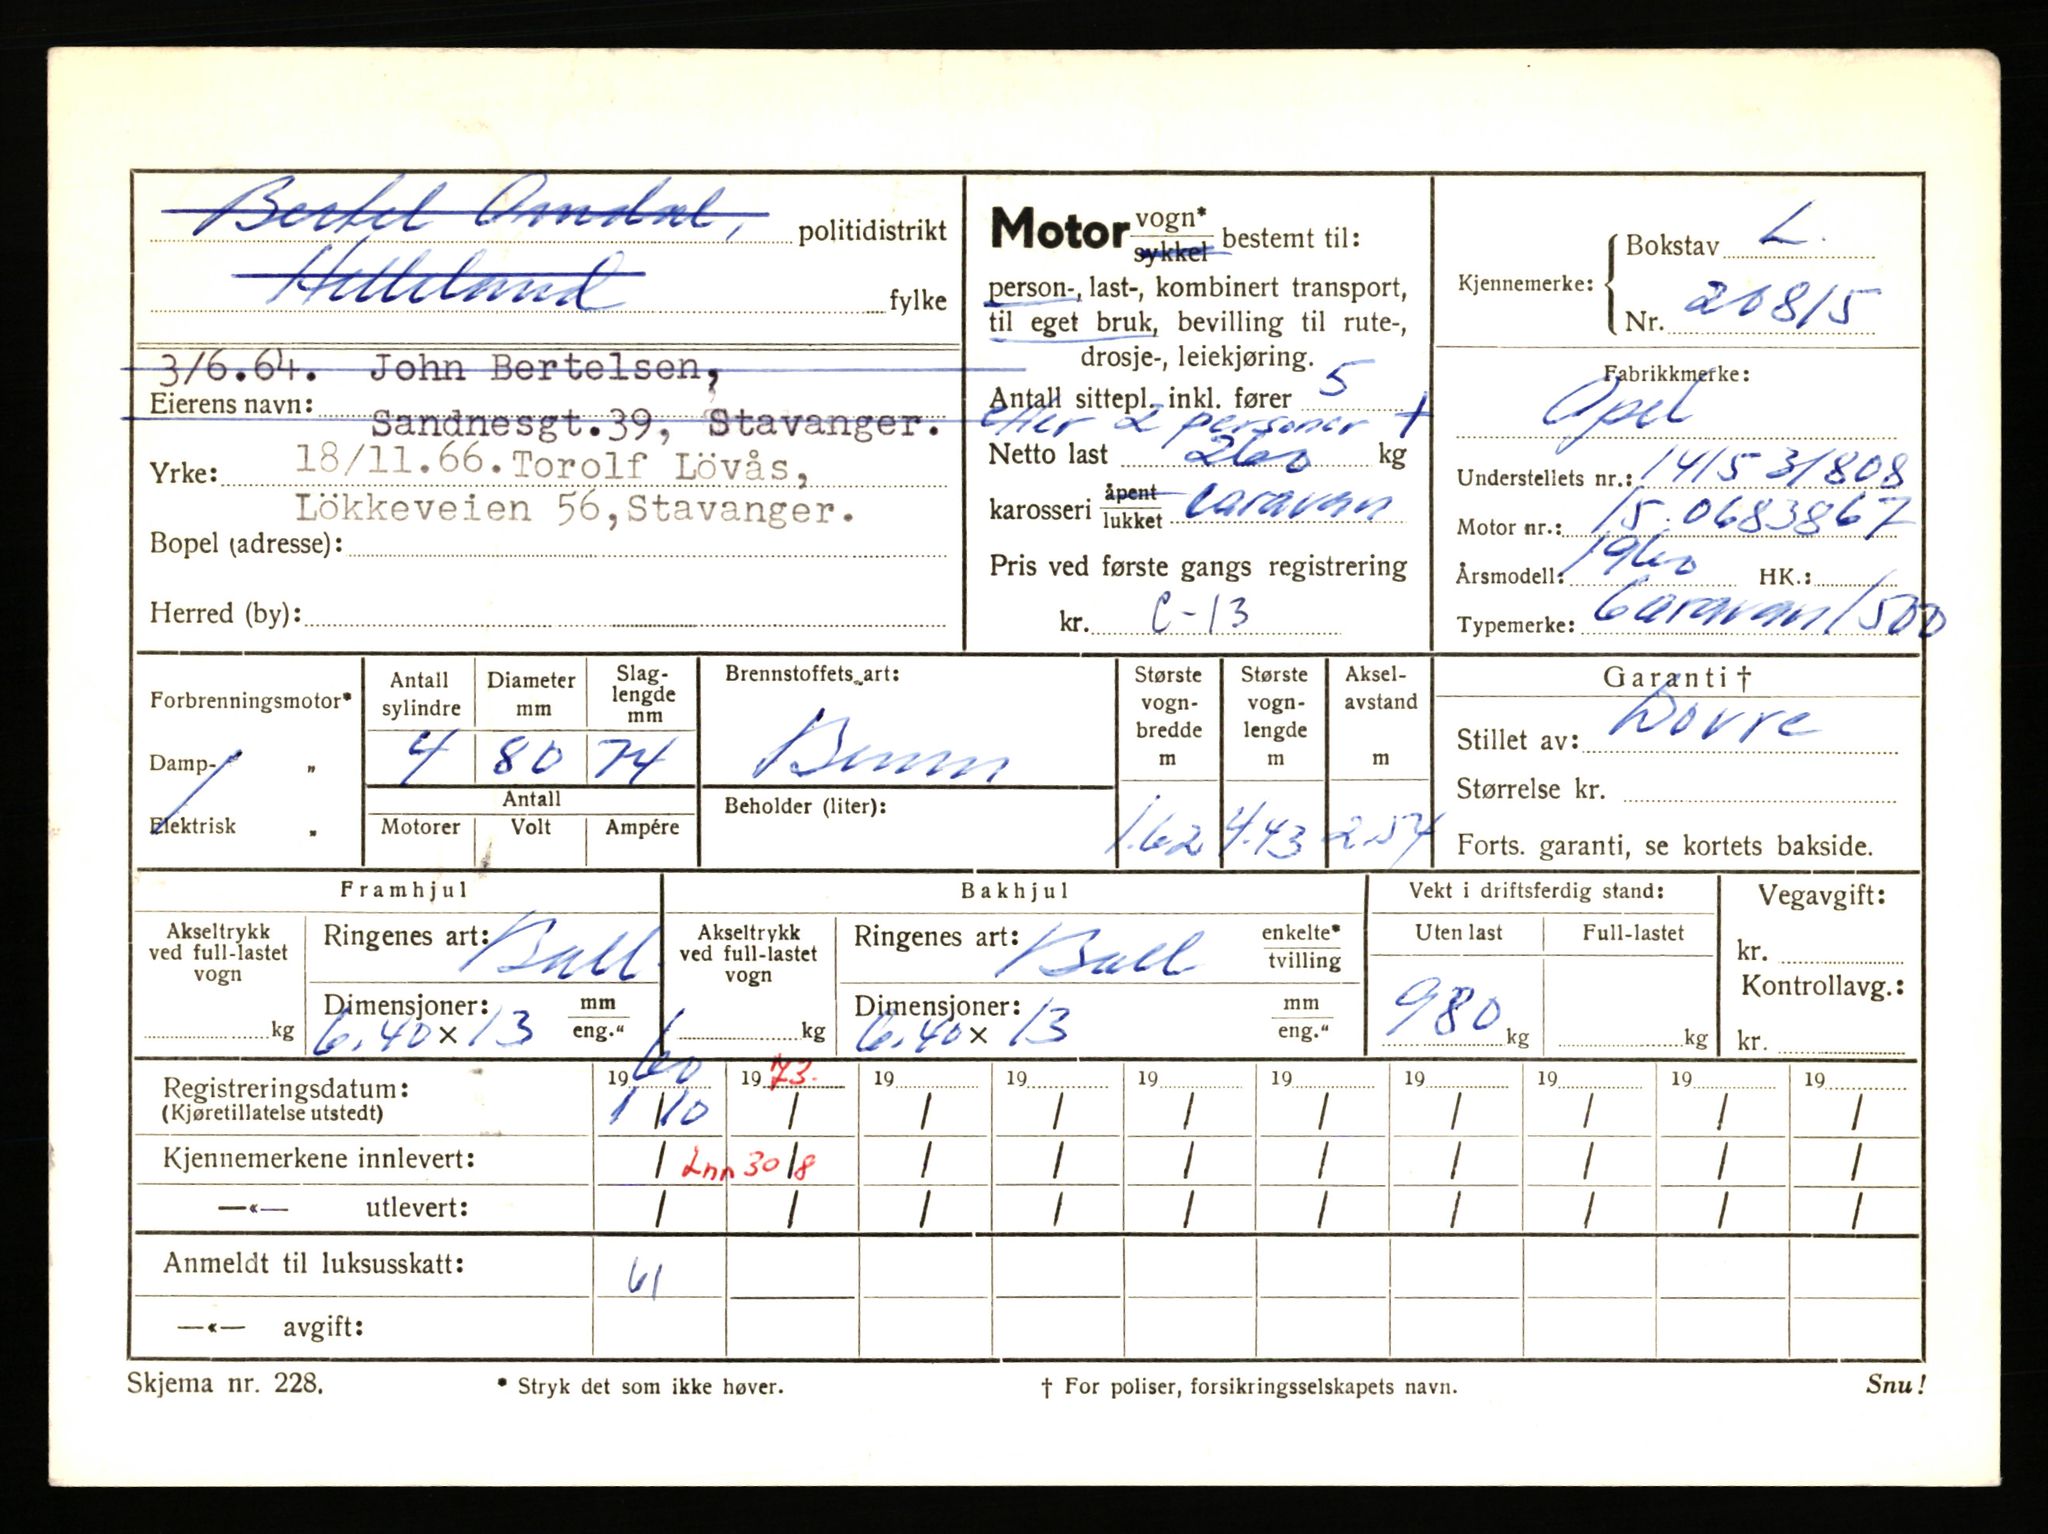 Bertel Omdal, politidistrikt
Helleland fylke
3/6.64. John Bertelsen,
Eierens navn:
Sandnesgt.39, Stavanger.
Yrke: 18/11.66. Torolf Lövås,
Lökkeveien 56, Stavanger.
Bopel (adresse):
Herred (by):
Motor vogn*
sykkel bestemt til:
person-, last-, kombinert transport,
til eget bruk, bevilling til rute-,
drosje-, leiekjøring.
Antall sittepl. inkl. fører 5
eller 2 personer +
Netto last 260 kg
karosseri åpent
lukket caravan
Pris ved første gangs registrering
kr. C-13
Kjennemerke: Bokstav L.
Nr. 20815
Fabrikkmerke:
Opel
Understellets nr.: 141531808
Motor nr.: 15.0683867
Årsmodell: 1960 HK.:
Typemerke: Caravan 1500
Forbrenningsmotor*
Damp- „
Elektrisk „
Antall sylindre 4
Diameter mm 80
Slag-
lengde
mm 74
Antall
Motorer Volt Ampére
Brennstoffets art:
Bensin
Beholder (liter):
Største
vogn-
bredde
m
1.62
Største
vogn-
lengde
m
4.43
Aksel-
avstand
m
2.54
Garanti †
Stillet av: Dovre
Størrelse kr.
Forts. garanti, se kortets bakside.
Framhjul
Akseltrykk
ved full-lastet
vogn
kg
Ringenes art: Ball
Dimensjoner: mm
6.40 × 13 eng."
Bakhjul
Akseltrykk
ved full-lastet
vogn
kg
Ringenes art: Ball enkelte*
tvilling
Dimensjoner: mm
6.40 × 13 eng."
Vekt i driftsferdig stand:
Uten last Full-lastet
980 kg kg
Vegavgift:
kr.
Kontrollavg.:
kr.
Registreringsdatum: 1960 1973. 19 19 19 19 19 19 19 19
(Kjøretillatelse utstedt) 1/10 / / / / / / / / /
Kjennemerkene innlevert: / Inn 30/8 / / / / / / / /
—«— utlevert: / / / / / / / / / /
Anmeldt til luksusskatt: 61
—«— avgift:
Skjema nr. 228. * Stryk det som ikke høver. † For poliser, forsikringsselskapets navn. Snu!